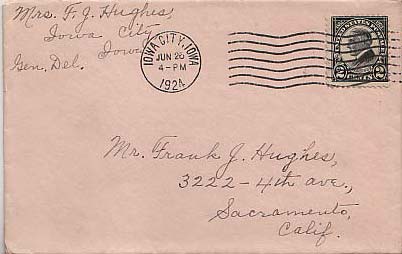 Mrs. F. J. Hughes,
Iowa City
Iowa
Gen. Del.
IOWA CITY, IOWA
JUN 26
4-PM
1924
2 2
Mr. Frank J. Hughes,
3222-4th ave.,
Sacramento,
Calif.